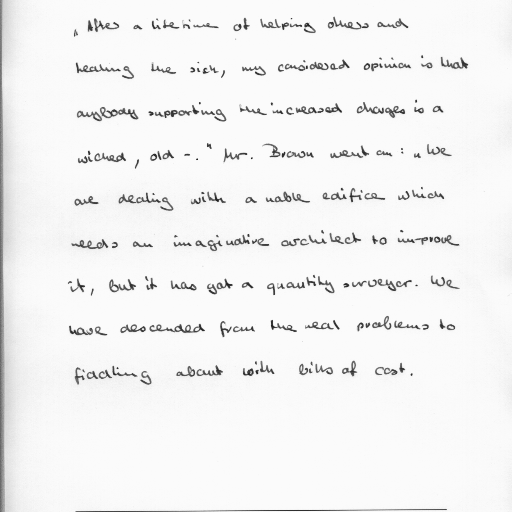 „After a lifetime of helping others and
healing the sick, my considered opinion is that
anybody supporting the increased charges is a
wicked, old -." Mr. Brown went on: „We
are dealing with a noble edifice which
needs an imaginative architect to improve
it, but it has got a quantity surveyor. We
have descended from the real problems to
fiddling about with bits of cost.